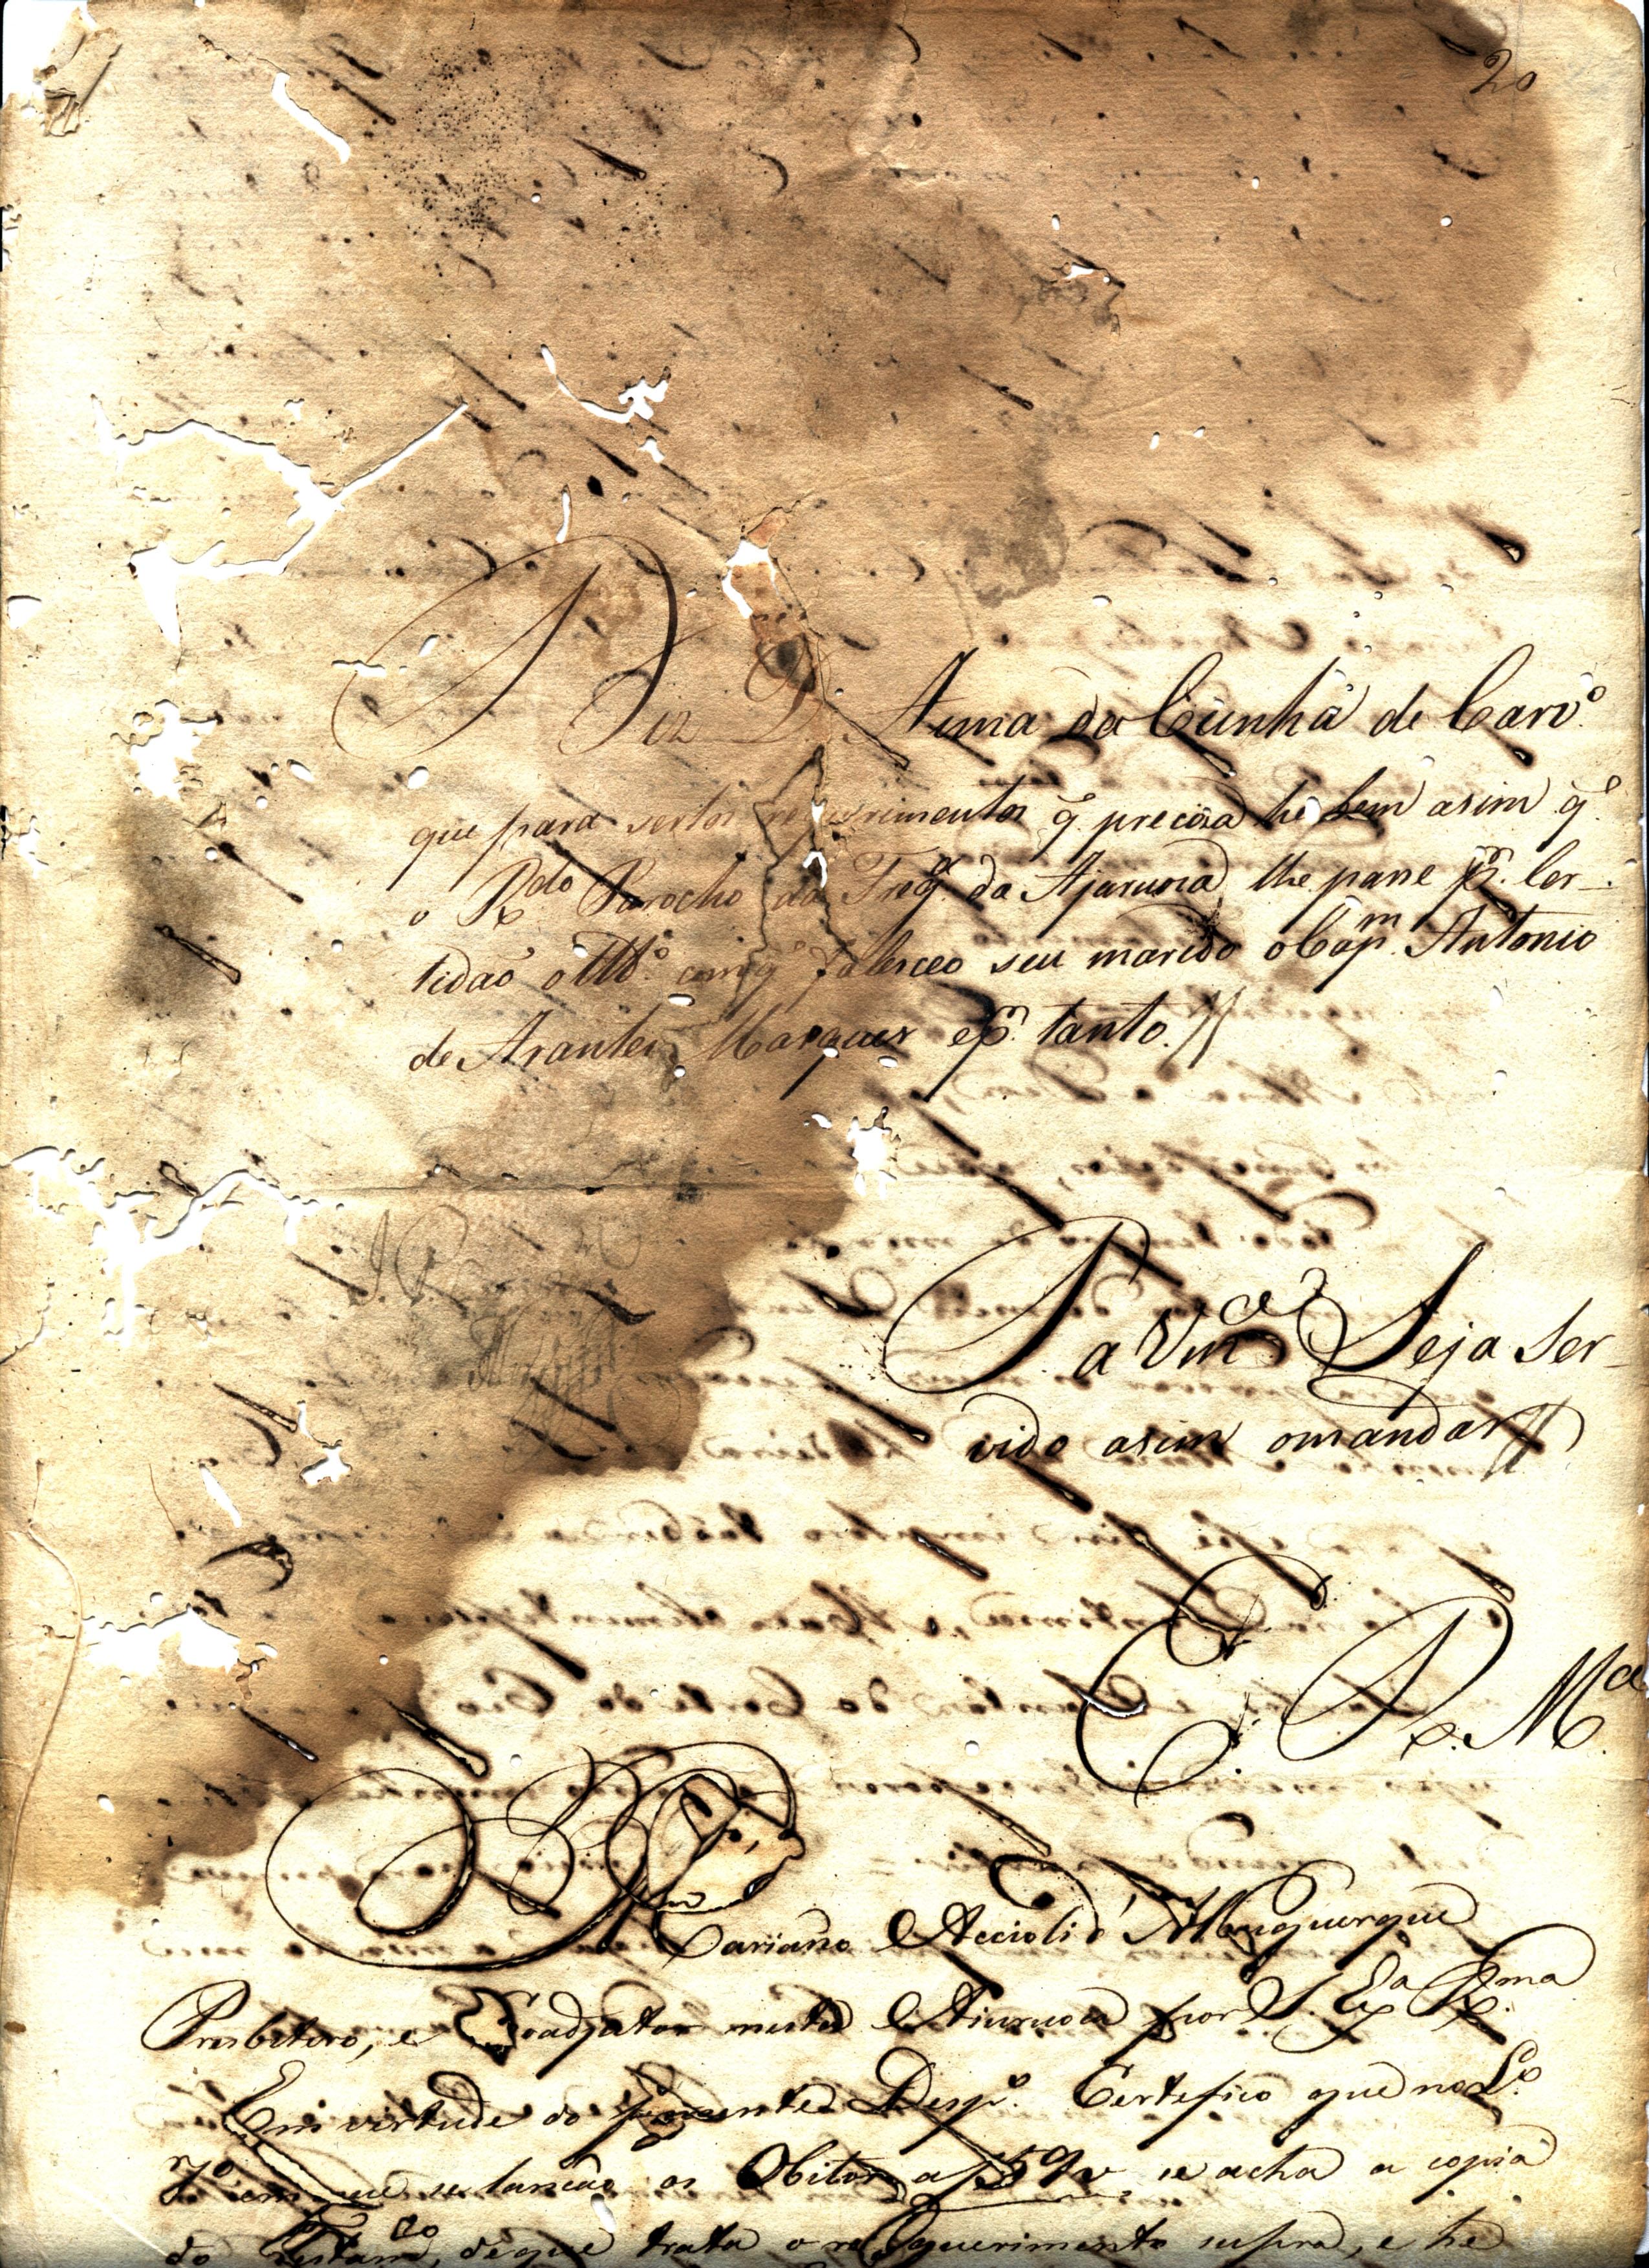 20
Diz D. Anna da Cunha de Carv.º
que para sertos requerimentos q. preciza he bem asim q.º
o R.do Parocho da Freg.a da Ajuruoca lhe passe p.r Cer-
tidaõ o Tt.º com q. faleceo seu marido o Cap.m Antonio
de Arantes Marques e p.r tanto.//
P. a Vm.ce Seja Ser-
vido asim o mandar//
E. R. M.ce
Mariano Accioli d'Albuquerque
Presbitero, e Coadjutor nesta Aiuruoca por S. Ex.a R.ma
Em virtude do presente Desp.º Certefico que no L.º
7º em que se lançaõ os Obitos a f 59 v se acha a copia
do Testam.to, de que trata o requerimento supra, e he